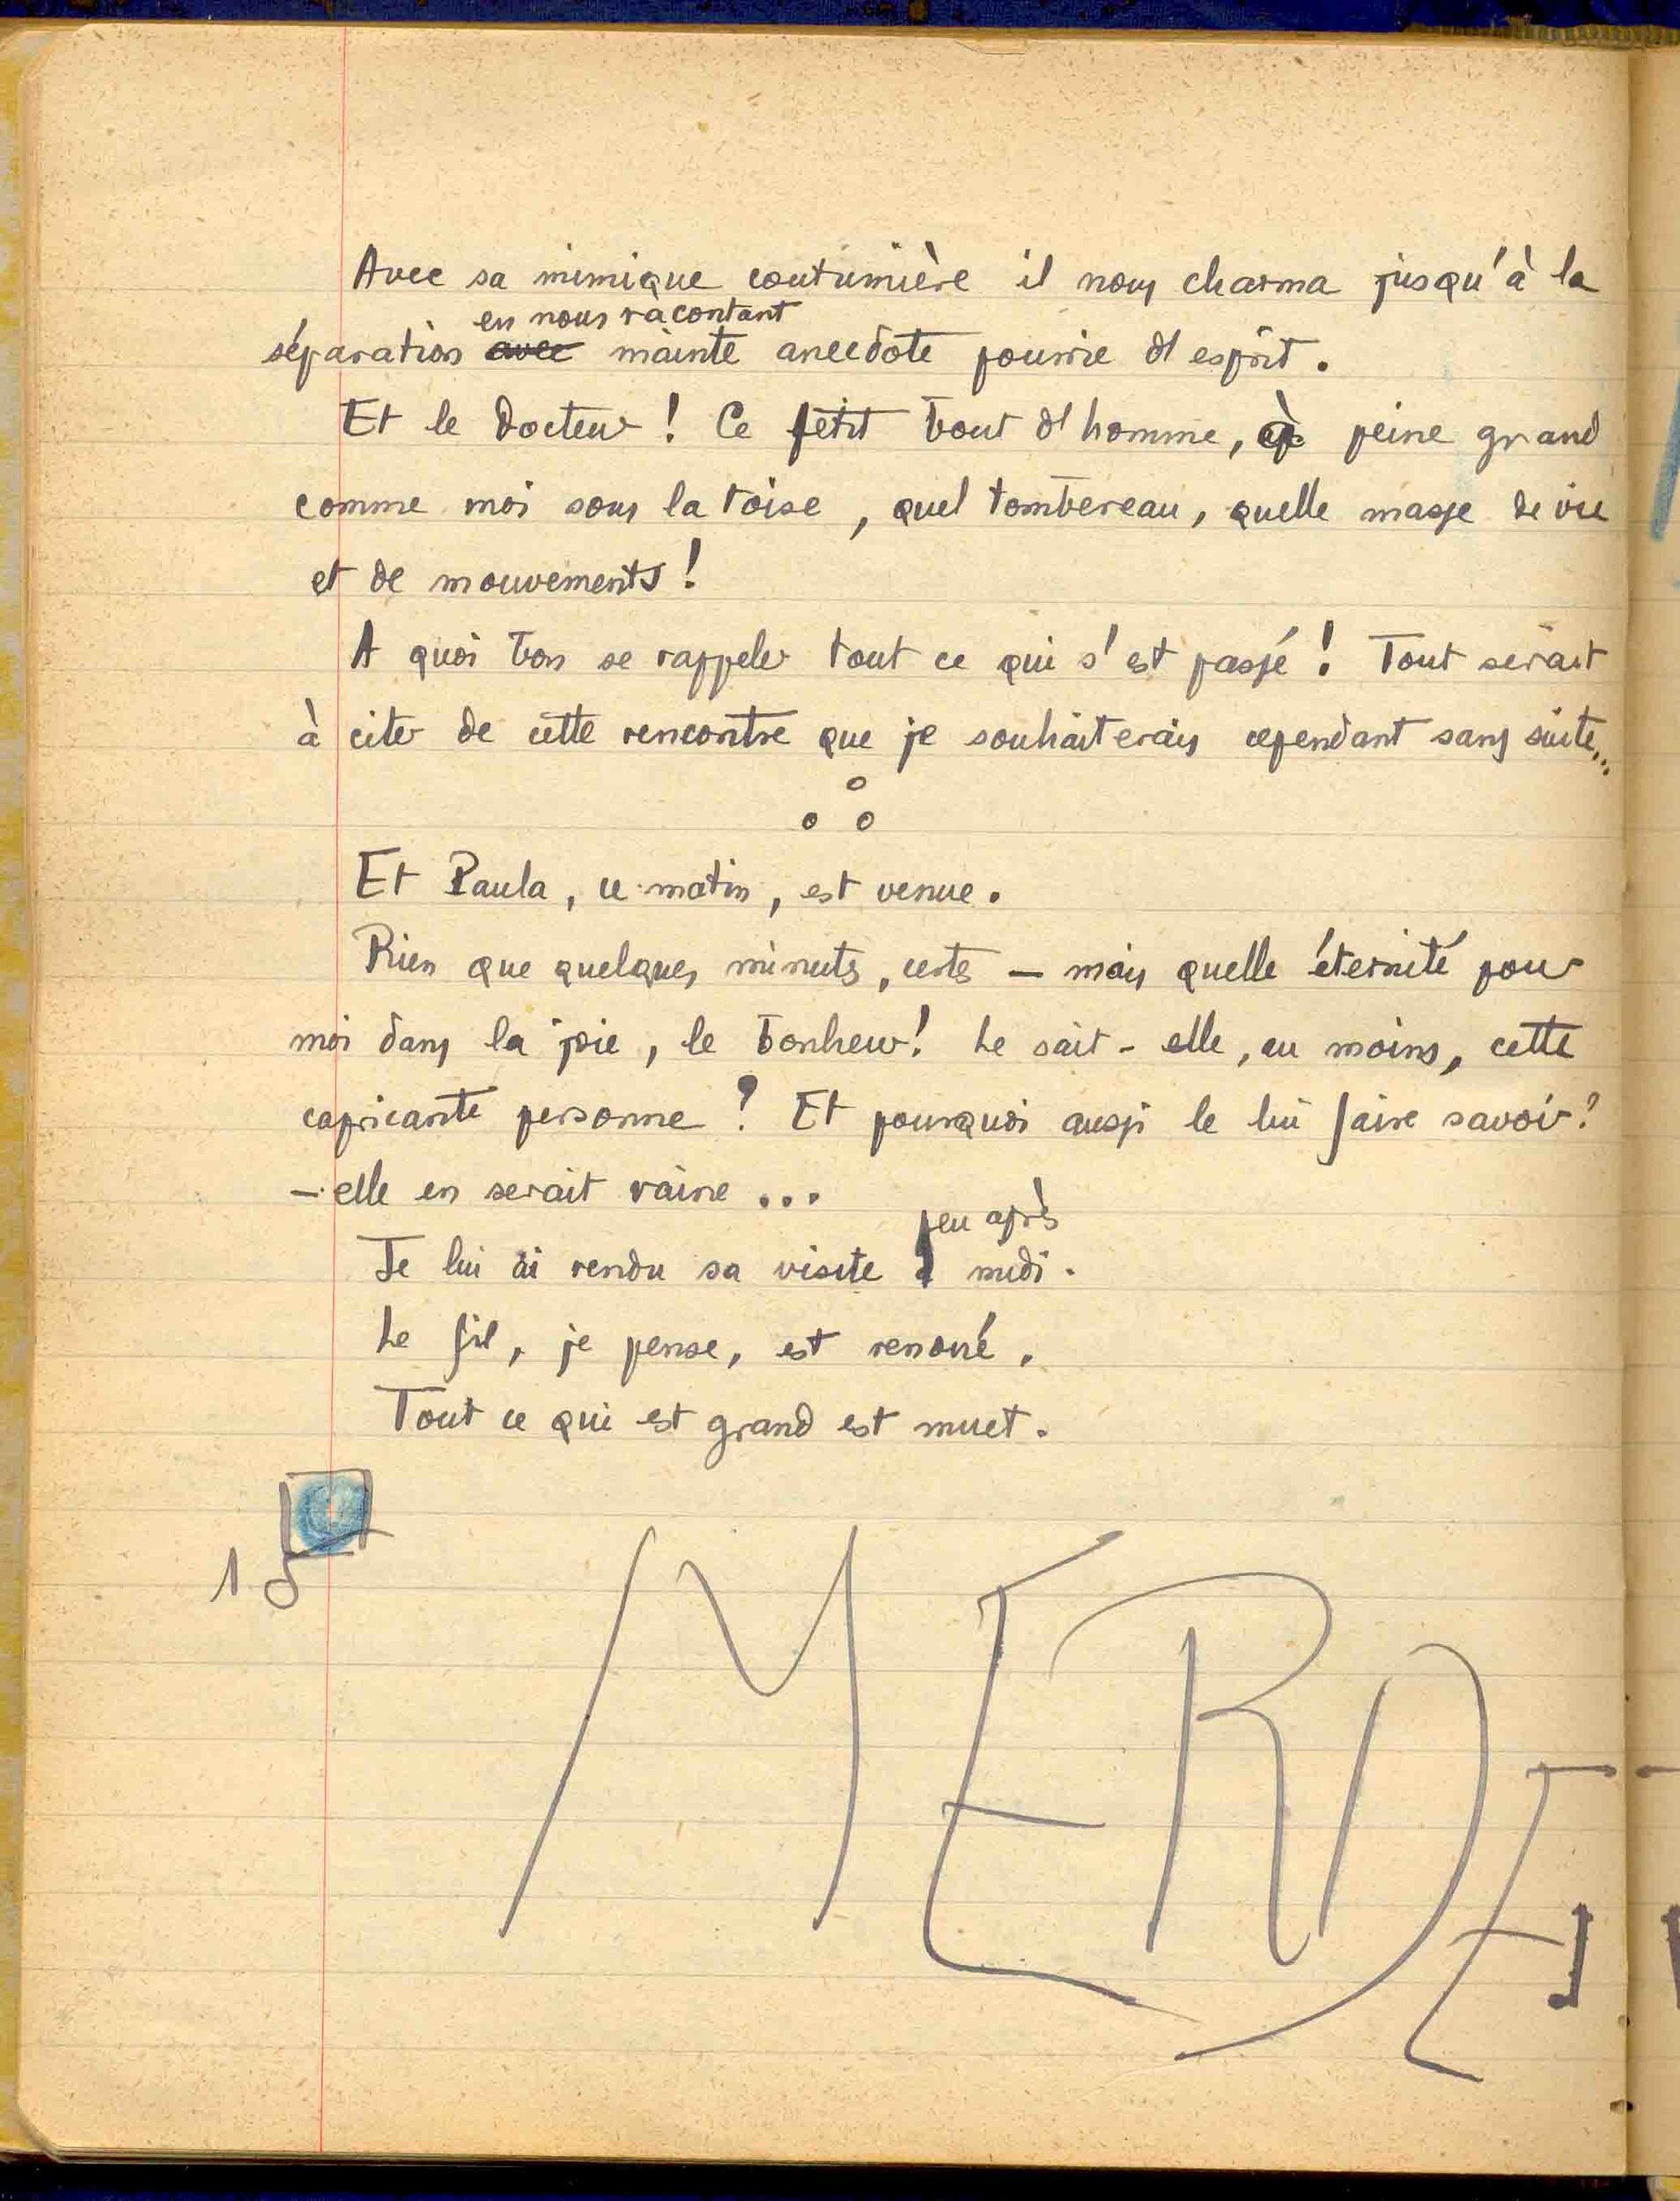 Avec sa mimique coutumière il nous charma jusqu'à la
en nous racontant
séparation avec mainte anecdote pourrie d'esprit.
Et le Docteur ! Ce petit bout d'homme, à peine grand
comme moi sous la toise, quel tombereau, quelle masse de vie
et de mouvements !
A quoi bon se rappeler tout ce qui s'est passé ! Tout serait
à citer de cette rencontre que je souhaiterais cependant sans suite...
Et Paula, ce matin, est venue.
Rien que quelques minutes, certes — mais quelle éternité pour
moi dans la joie, le bonheur ! Le sait-elle, au moins, cette
capricante personne ? Et pourquoi aussi le lui faire savoir ?
— elle en serait vaine ...
peu après
Je lui ai rendu sa visite midi.
Le fil, je pense, est renoué.
Tout ce qui est grand est muet.
15
MERDE